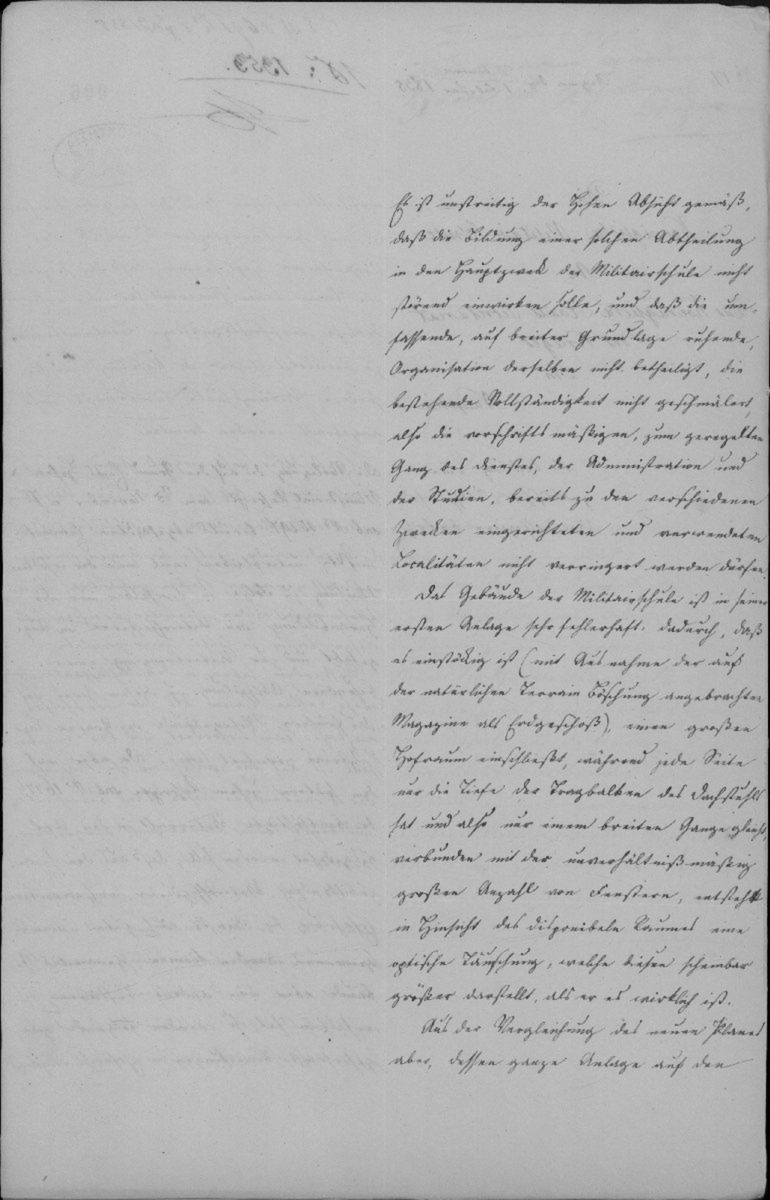 Es ist unstreitig der Hohen Absicht gemäß,
daß die Bildung einer solchen Abtheilung
in den Hauptzweck der Militairschule nicht
störend einwirken solle, und daß die um-
fassende, auf breiter Grundlage ruhende,
Organisation derselben nicht betheiligt, die
bestehende Vollständigkeit nicht geschmälert,
also die vorschriftsmäßigen, zum geregelten
Gang des Dienstes, der Administration und
der Studien, bereits zu den verschiedenen
Zwecken eingerichteten und verwendeten
Localitäten nicht verringert werden dürfen.
Das Gebäude der Militairschule ist in seiner
ersten Anlage sehr fehlerhaft. Dadurch, daß
es einstökig ist (mit Ausnahme der auf
der natürlichen Terrain Böschung angebrachten
Magazine als Erdgeschoß), einen großen
Hofraum einschließt, während jede Seite
nur die Tiefe der Tragbalken des Dachstuhls
hat und also nur einem breiten Gange gleicht,
verbunden mit der unverhältnißmäßig
großen Anzahl von Fenstern, entsteht
in Hinsicht des disponibeln Raumes eine
optische Täuschung, welche diesen scheinbar
größer darstellt, als er es wirklich ist.
Aus der Vergleichung des neuen Planes
aber, dessen ganze Anlage auf den